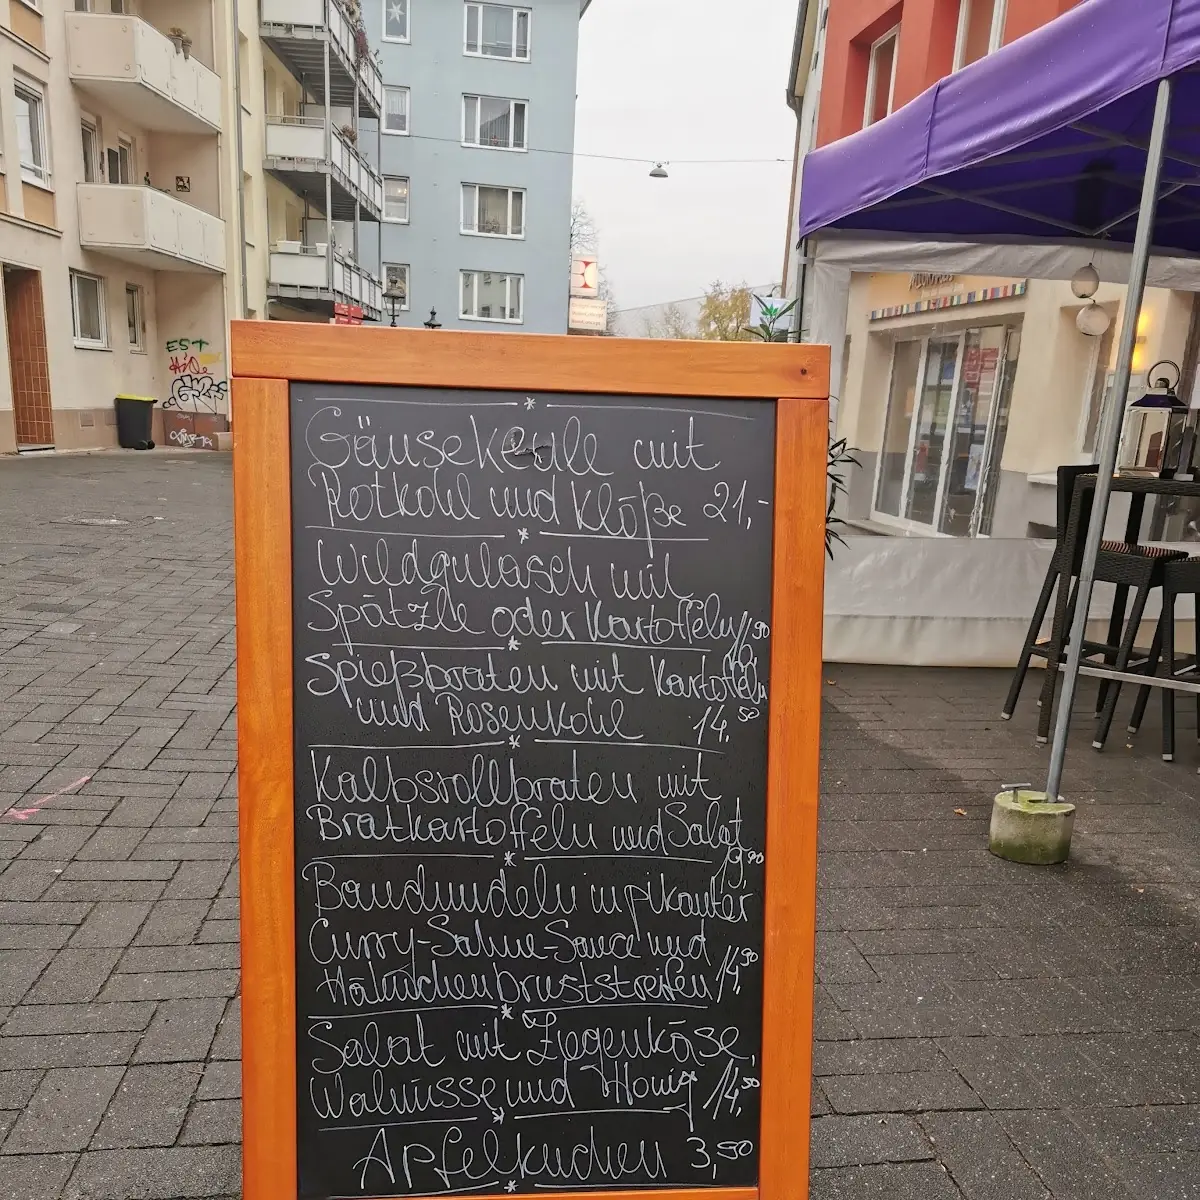 EST
Gänsekeule mit
Rotkohl und Klöße 21,-
Wildgulasch mit
Spätzle oder Kartoffeln 16,90
Spießbraten mit Kartoffeln
und Rosenkohl 14,50
Kalbsrollbraten mit
Bratkartoffeln und Salat
19,90
Bandnudeln in pikanter
Curry-Sahne-Sauce und
Hähnchenbruststreifen 14,90
Salat mit Ziegenkäse,
Walnüsse und Honig 14,50
Apfelkuchen 3,50